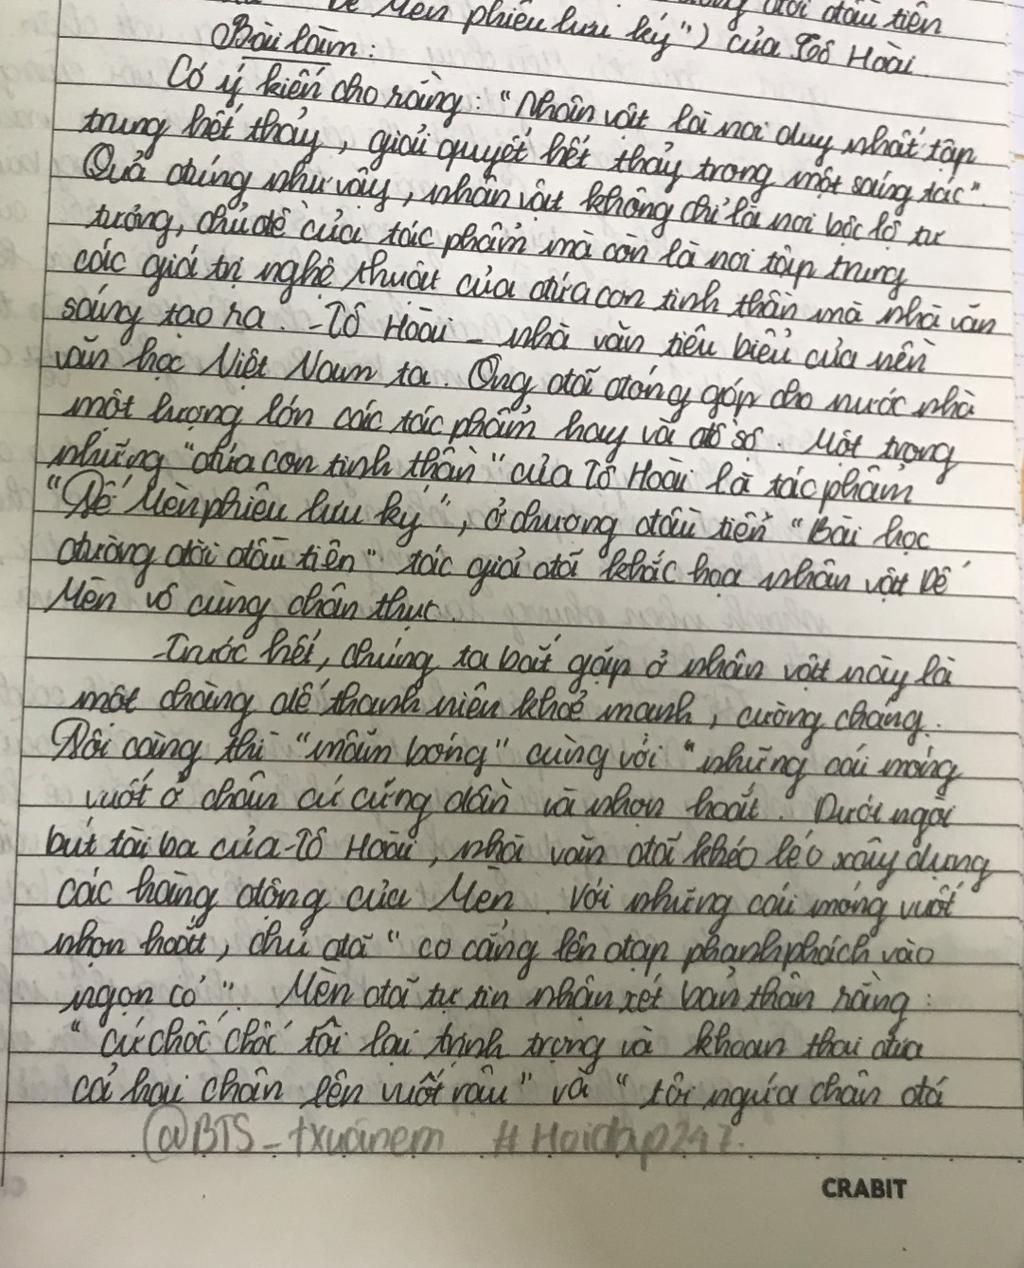 Dế Mèn phiêu lưu ký") của Tô Hoài. đời đầu tiên
Bài làm:
Có ý kiến cho rằng: "Nhân vật là nơi duy nhất tập
trung hết thảy, giải quyết hết thảy trong một sáng tác".
Quả đúng như vậy, nhân vật không chỉ là nơi bộc lộ tư
tưởng, chủ đề của tác phẩm mà còn là nơi tập trung
các giá trị nghệ thuật của đứa con tinh thần mà nhà văn
sáng tạo ra. Tô Hoài - nhà văn tiêu biểu của nền
văn học Việt Nam ta. Ông đã đóng góp cho nước nhà
một lượng lớn các tác phẩm hay và đồ sộ. Một trong
những "đứa con tinh thần" của Tô Hoài là tác phẩm
"Dế Mèn phiêu lưu ký", ở chương đầu tiên "Bài học
đường đời đầu tiên" tác giả đã khắc họa nhân vật Dế
Mèn vô cùng chân thực.
Trước hết, chúng ta bắt gặp ở nhân vật này là
một chàng dế thanh niên khoẻ mạnh, cường cháng.
Đôi càng thì "mẫm bóng" cùng với "những cái móng
vuốt ở chân cứ cứng dần và nhọn hoắt. Dưới ngòi
bút tài ba của Tô Hoài, nhà văn đã khéo léo xây dựng
các hành động của Mèn. Với những cái móng vuốt
nhọn hoắt, chú đã "co cẳng lên đạp phanh phách vào
ngọn cỏ". Mèn đã tự tin nhận xét bản thân rằng:
"Cứ chốc chốc tôi lại trịnh trọng và khoan thai đưa
cả hai chân lên vuốt râu" và "tôi ngứa chân đá
@BTS_txuânem #Hoidap247.
CRABIT